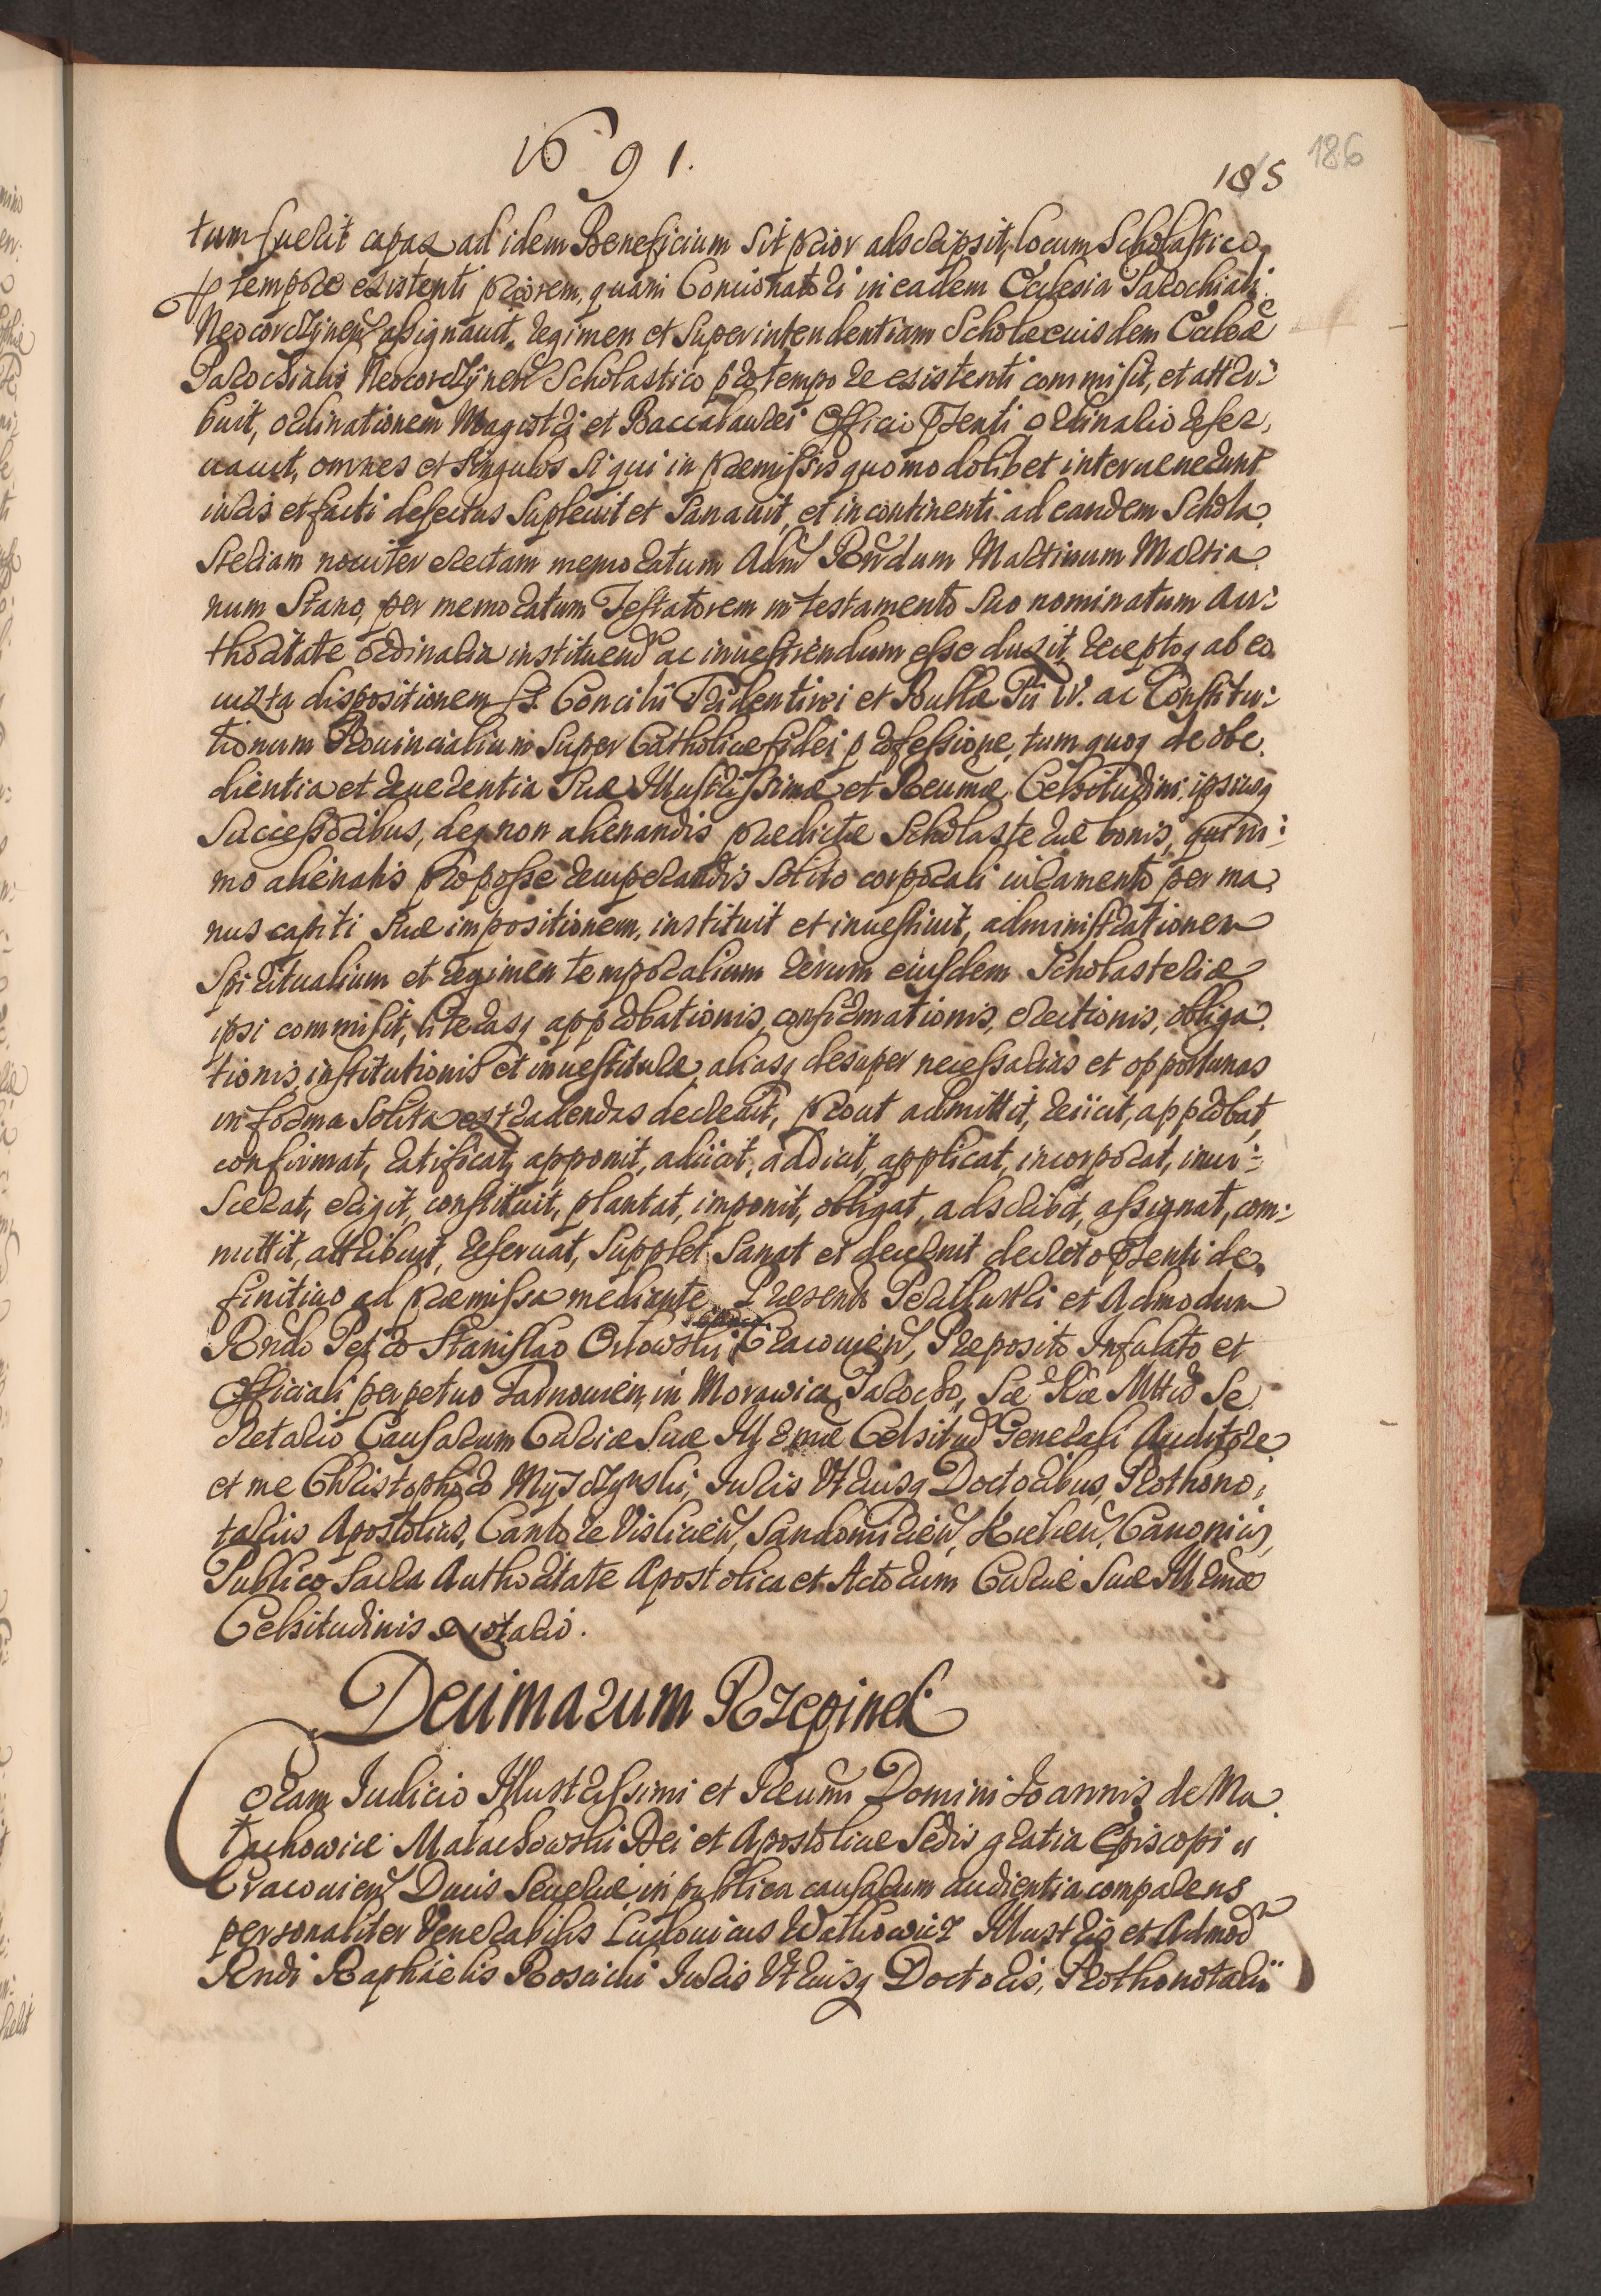 1691.
185
186
tum fuerit capax ad idem Beneficium sit prior adscripsit, locum Scholastico
pro tempore existenti priorem, quam Concionatori in eadem Ecclesia Parochiali
Neocorczynen assignauit, regimen et superintendentiam Scholae eiusdem Eccleae
Parochialis Neocorczynen Scholastico pro tempore existenti commisit, et attri:
buit, ordinationem Magistri et Baccalaurei Officio pnti ordinario reser,
uauit, omnes et singulos si qui in praemissis quomodolibet interuenerunt
iuris et facti defectus supleuit et sanauit, et in continenti ad eandem Schola,
steriam nouiter erectam memoratum Adm Rndum Martinum Martia,
num Stano, per memoratum Testatorem in testamento suo nominatum Au:
thoritate ordinaria instituend ac inuestiendum esse duxit, receptoq ab eo
iuxta dispositionem S. Concilii Tridentini et Bulla Pii IV. ac Constitu:
tionum Prouincialium super Catholicae fidei professione, tum quoq de obe,
dientia et reuerentia Suae Illustrissimae et Reumae Celsitudini, ipsiusq
Successoribus, deq non alienandis praedictae Scholasteriae bonis, quin i:
mo alienatis pro posse recuperandis solito corporali iuramento per ma,
nus capiti suae impositionem, instituit et inuestiuit, administrationem
Spiritualium et regimen temporalium rerum eiusdem Scholasteriae
ipsi commisit, literasq approbationis, confirmationis, erectionis, obliga,
tionis, institutionis et inuestiturae, aliasq desuper necessarias et opportunas
in forma solita extradendas decreuit, prout admittit, reiicit, approbat,
confirmat, ratificat, apponit, adiicit, addicit, applicat, incorporat, inui:
scerat, erigit, constituit, plantat, imponit, obligat, adscribit, assignat, com:
mittit, attribuit, reseruat, supplet, sanat et decernit decreto pnti de,
finitiuo ad praemissa mediante. Praesent Perillustri et Admodum
Rndo Petro Stanislao Orłowski Cracouien, Praeposito Infulato et
Officiali perpetuo Tarnouien, in Morawica Parocho, Sae Rae Mttis Se,
cretario Causarum Curiae Suae Ill Rmae Celsitud Generali Auditore
et me Christophoro Myszczynski, Iuris Utriusq Doctoribus, Prothono,
tariis Apostolicis, Cantore Vislicien, Sandomirien, Kielcen, Canonicis,
Publico Sacra Authoritate Apostolica et Actorum Curiae Suae Ill Rmae
Celsitudinis Notario.
Decimarum Rzepinek
Coram Iudicio Illustrissimi et Reumi Domini Ioannis de Ma,
łachowice Małachowski Dei et Apostolicae Sedis gratia Episcopi
Cracouien, Ducis Seueriae, in publica causarum audientia comparens
personaliter Venerabilis Ludouicus Wałkowicz Illustris et Admod
Rndi Raphaelis Roscicki Iuris Utriusq Doctoris, Prothonotarii